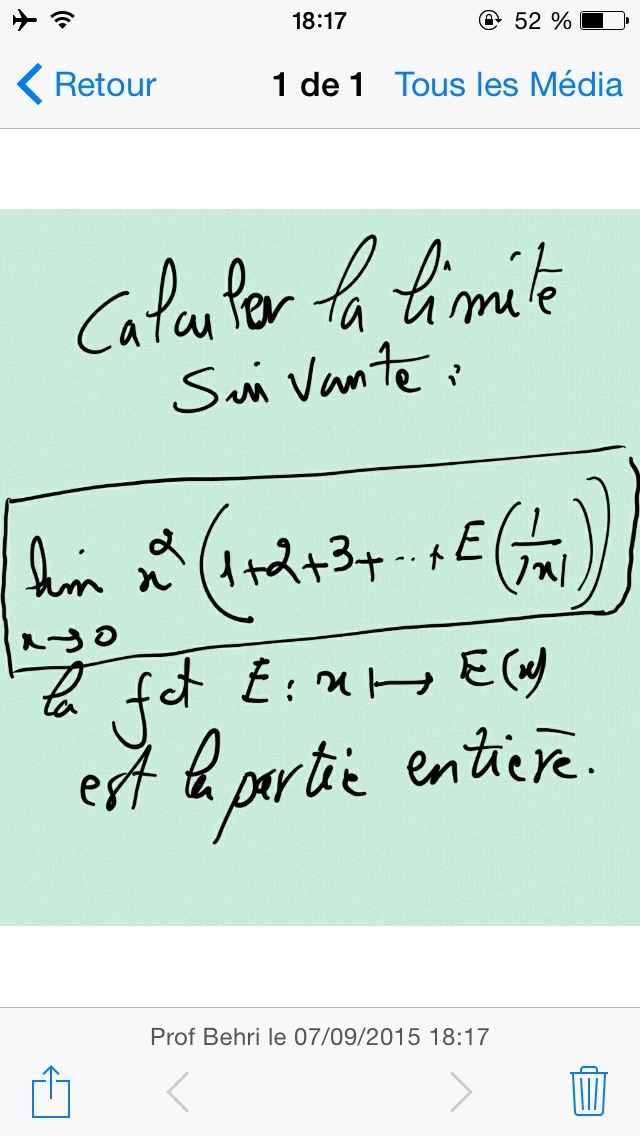 18:17
52 %
Retour
1 de 1
Tous les Média
Calculer la limite
suivante :
lim x² (1+2+3+...+ E(1/|x|))
x→0
la fct E : x ↦ E(x)
est la partie entière.
Prof Behri le 07/09/2015 18:17